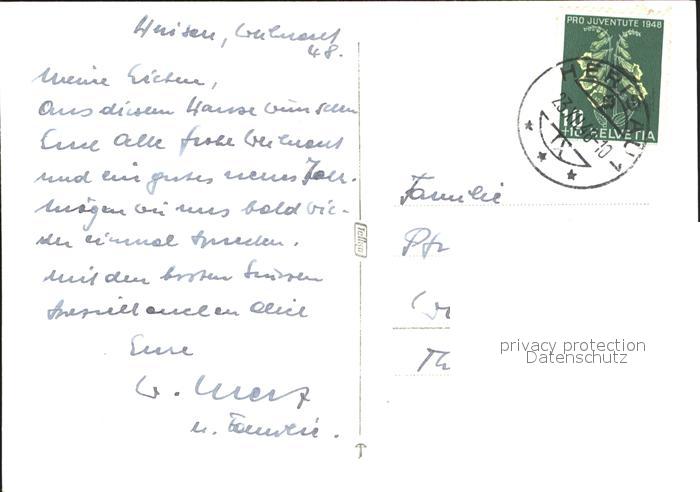 Weihnacht
48.
Meine Lieben,
Aus diesem Hause wünschen
Eine alle frohe Weihnacht
und ein gutes neues Jahr.
Mögen wir uns bald wie-
der einmal sprechen.
Mit den besten Grüssen
speziell auch an
Eure
W. Merz
u. Familie.
Tellko
PRO JUVENTUTE 1948
10
HELVETIA
HERISAU 1
Familie
Pfr
Th
privacy protection
Datenschutz